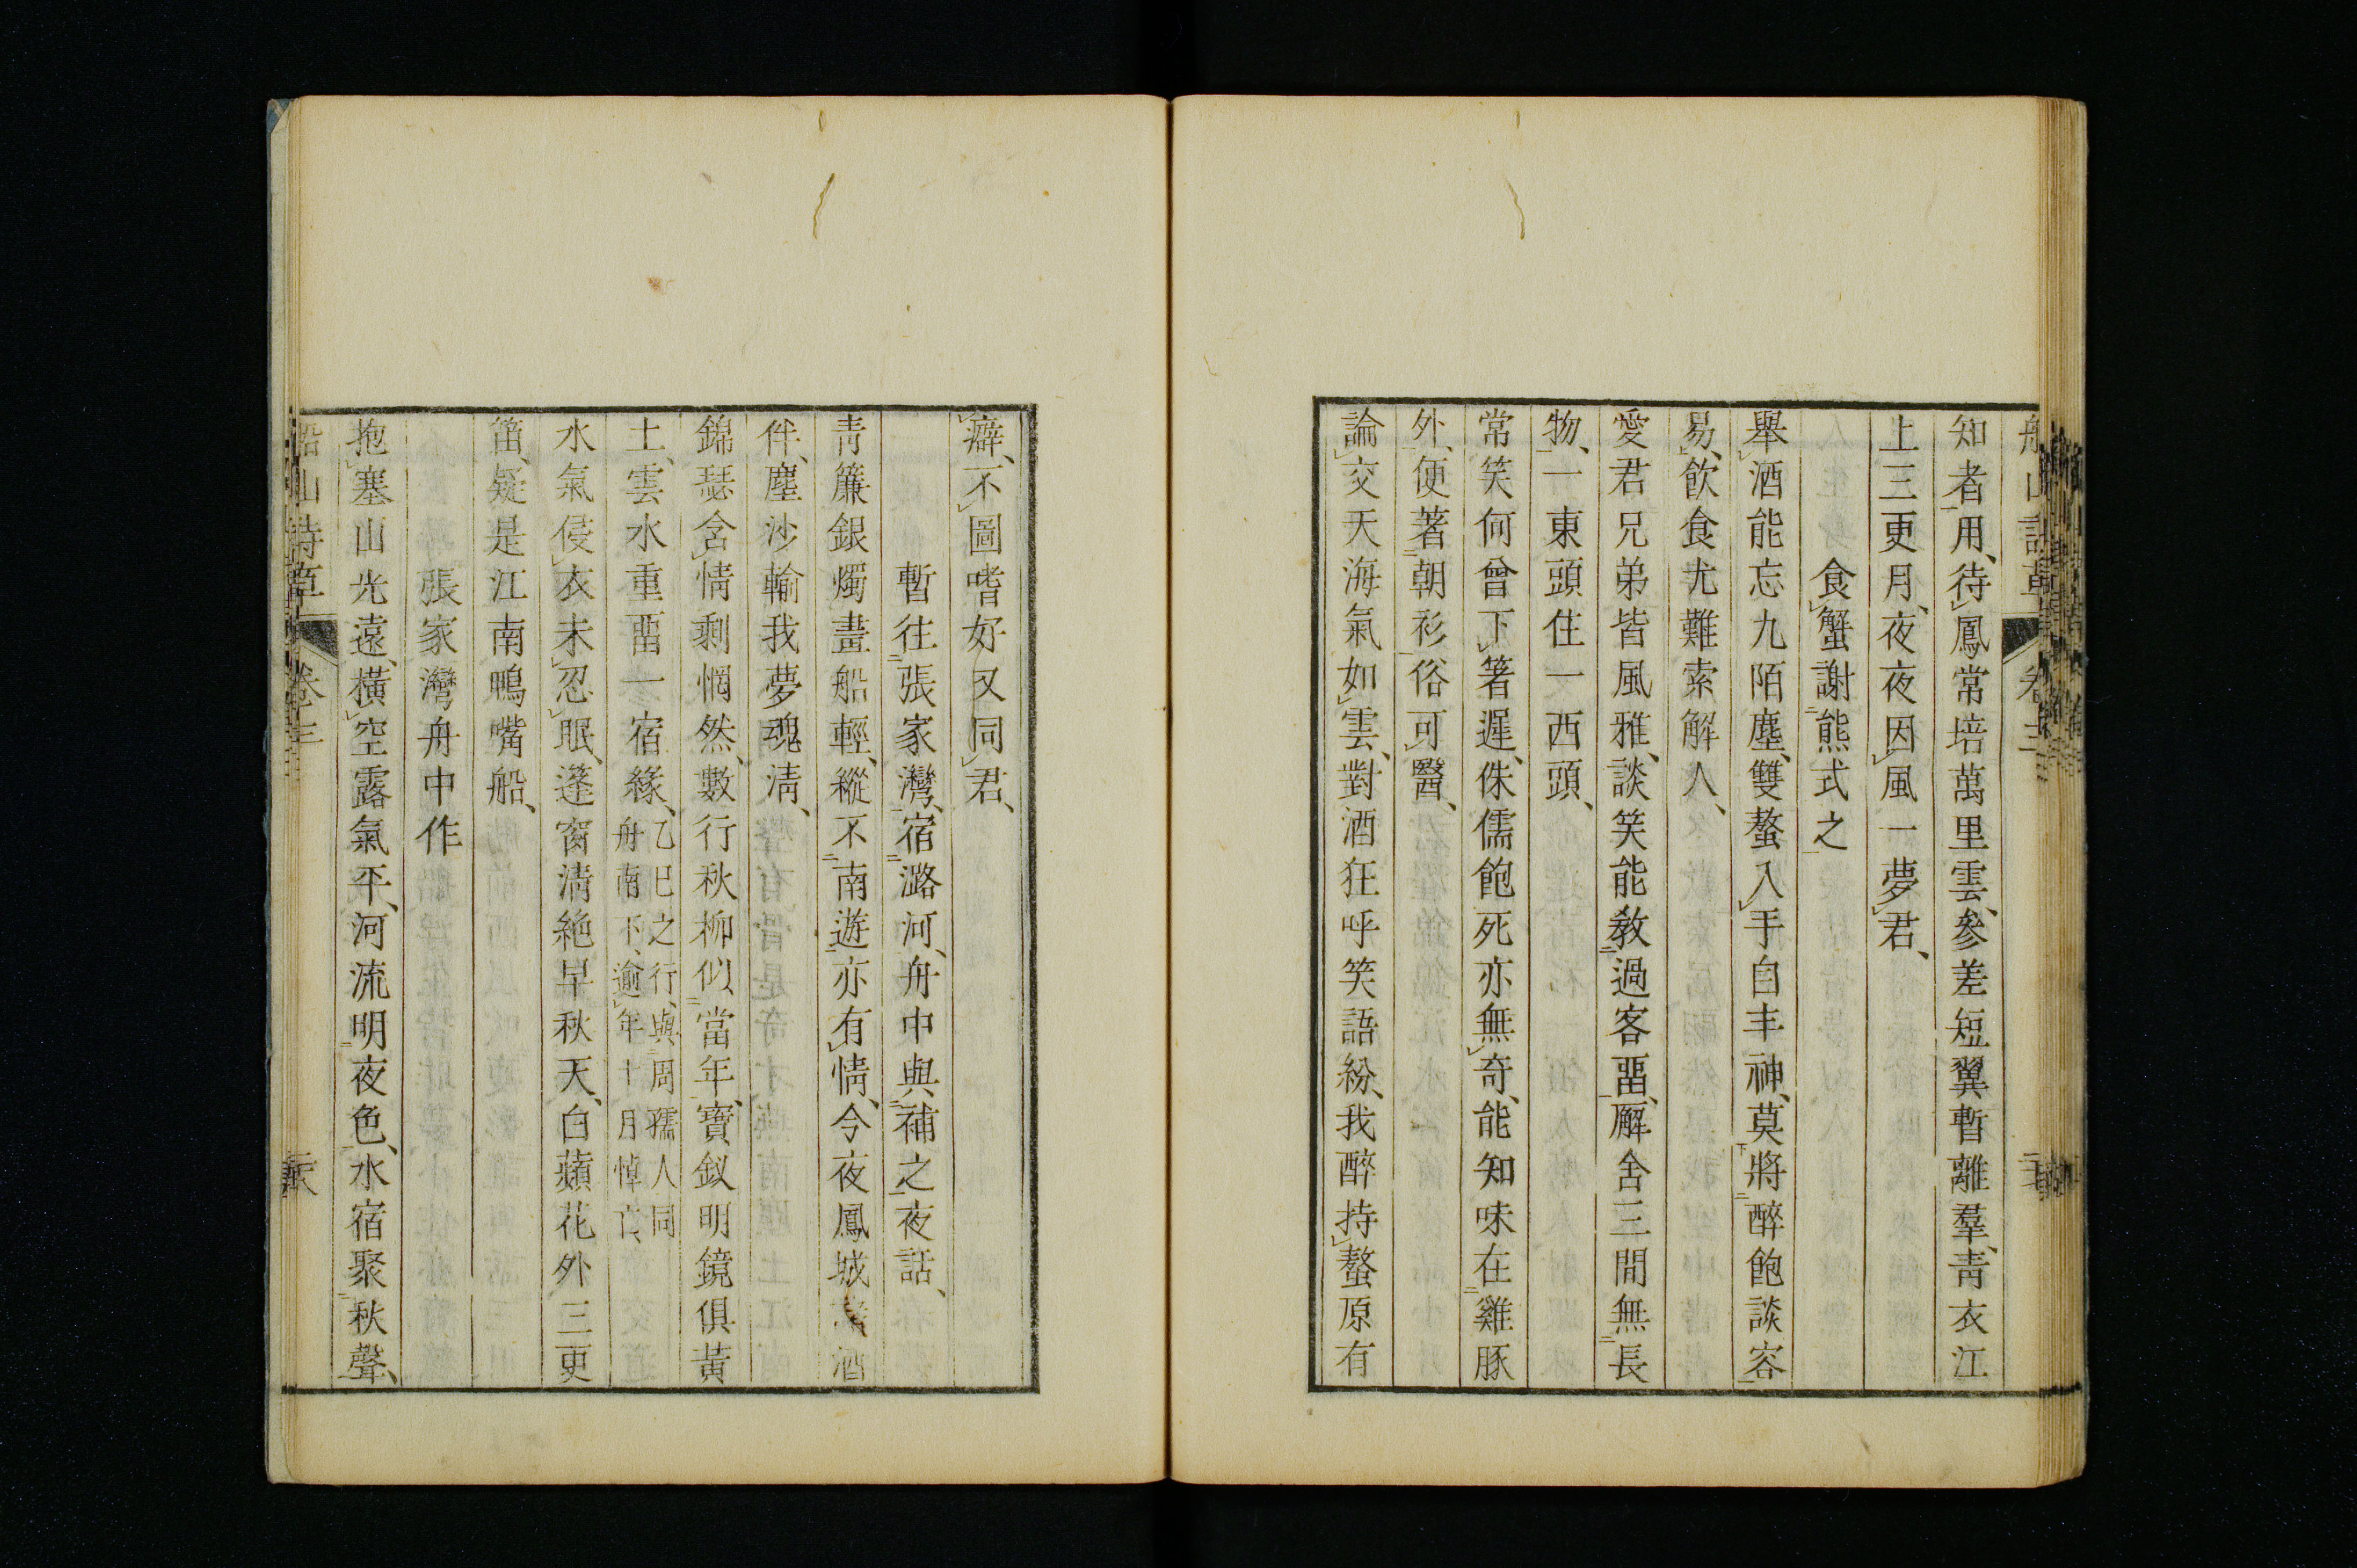 知者用、待鳳常培萬里雲、參差短翼暫離羣、青衣江
上三更月、夜夜因風一夢君、
食蟹謝熊式之
舉酒能忘九陌塵、雙螯入手自丰神、莫將醉飽談容
易、飲食尤難索解人、
愛君兄弟皆風雅、談笑能教過客畱、廨舍三間無長
物、一東頭住一西頭、
常笑何曾下箸遲、侏儒飽死亦無奇、能知味在雞豚
外、便著朝衫俗可醫、
論交天海氣如雲、對酒狂呼笑語紛、我醉持螯原有
癖、不圖嗜好又同君、
暫往張家灣、宿潞河、舟中與補之夜話、
青簾銀燭畫船輕、縱不南遊亦有情、今夜鳳城 酒
伴、塵沙輸我夢魂清、
錦瑟含情剩惘然、數行秋柳似當年、寶釵明鏡俱黃
土、雲水重畱一宿緣、乙巳之行、與周孺人同
舟南下、逾年十月悼亡、
水氣侵衣未忍眠、篷窗清絶早秋天、白蘋花外三更
笛、疑是江南鴨嘴船、
張家灣舟中作
抱塞山光遠、橫空露氣平、河流明夜色、水宿聚秋聲、
船山詩草 卷三